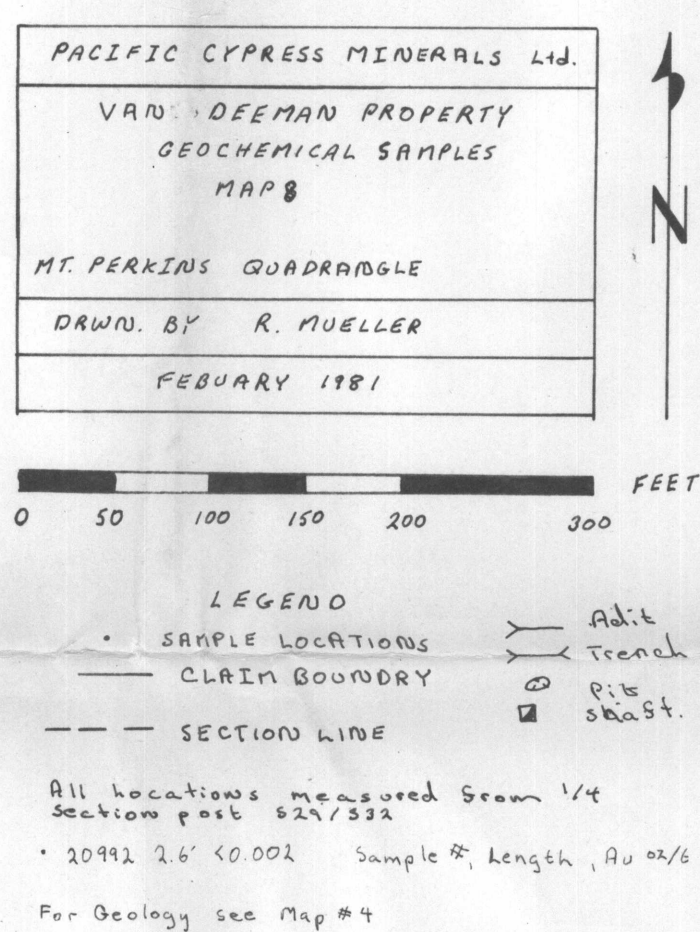 PACIFIC CYPRESS MINERALS Ltd.
VAN DEEMAN PROPERTY
GEOCHEMICAL SAMPLES
MAP 8
MT. PERKINS QUADRANGLE
DRWN. BY R. MUELLER
FEBUARY 1981
N
FEET
0 50 100 150 200 300
LEGEND
SAMPLE LOCATIONS
CLAIM BOUNDRY
SECTION LINE
Adit
Trench
Pit
shaft.
All Locations measured from 1/4
Section post S29/S32
• 20992 2.6' <0.002 Sample #, Length, Au oz/t
For Geology see Map #4